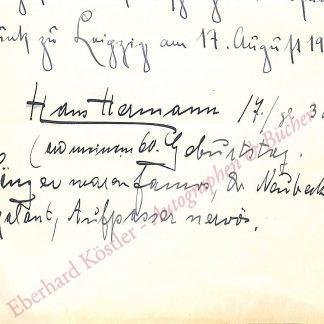 zu Leipzig am 17. August 19
Hans Hermann 17./8. 3
(und meinem 60. Geburtstag.
waren famos, die
galant, Aufpasser nervös.
Eberhard Köstler - Autographen & Bücher